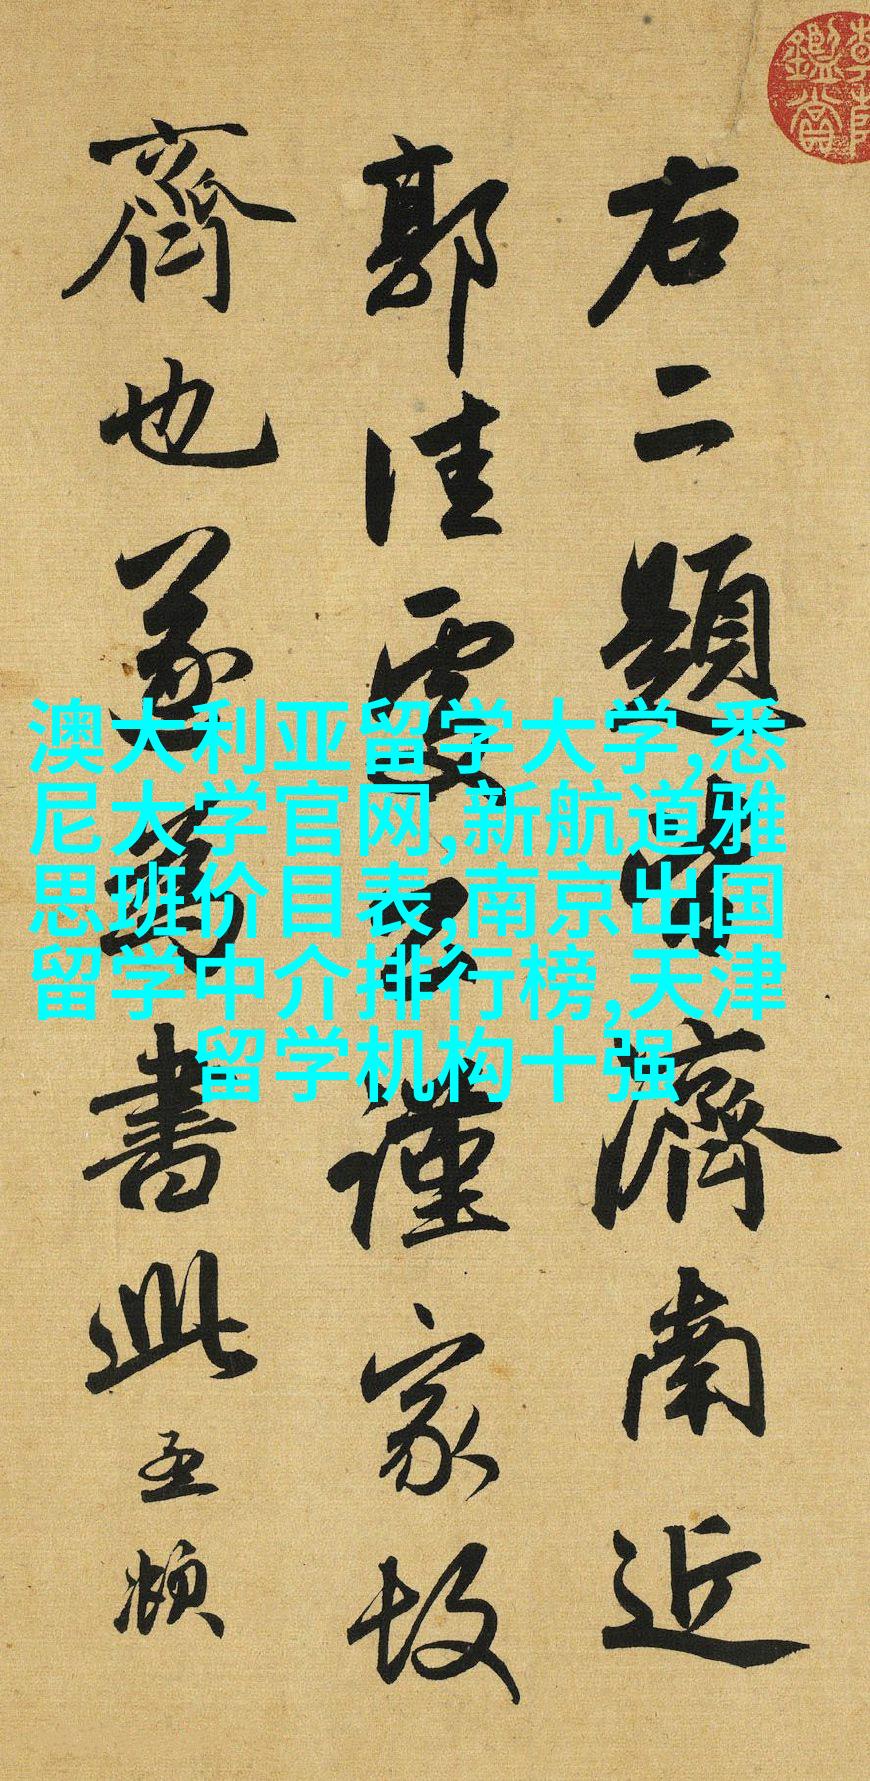 鑑賞
右二題濟南近
郭佳謹家故
齊也遂為書此孟頫
澳大利亚留学大学,悉
尼大学官网,新航道雅
思班价目表,南京出国
留学中介排行榜,天津
留学机构十强